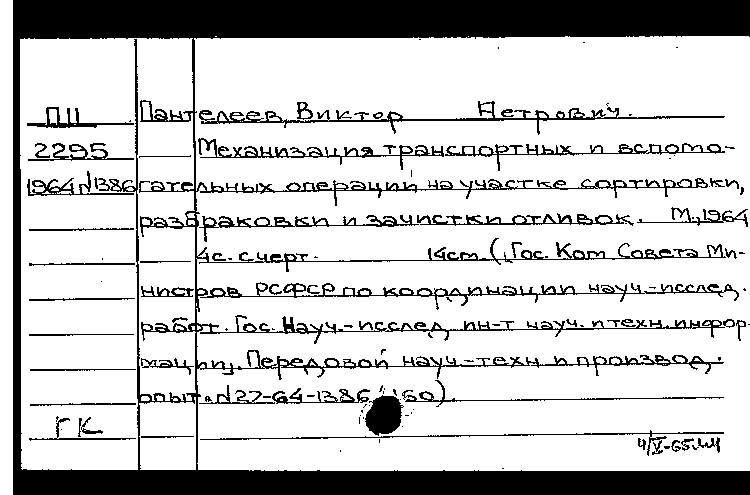 ПII Пантелеев, Виктор Петрович.
2295 Механизация транспортных и вспомо-
1964 N1386 гательных операций на участке сортировки,
разбраковки и зачистки отливок. М., 1964
4с. с черт. 14см (Гос. Ком Совета Ми-
нистров РСФСР по координации науч.-исслед.
работ. Гос. Науч.-исслед, ин-т науч. и техн. инфор-
мации. Передовой науч.-техн и производ.
опыт. N22-64-1386/160).
ГК
4/V-65